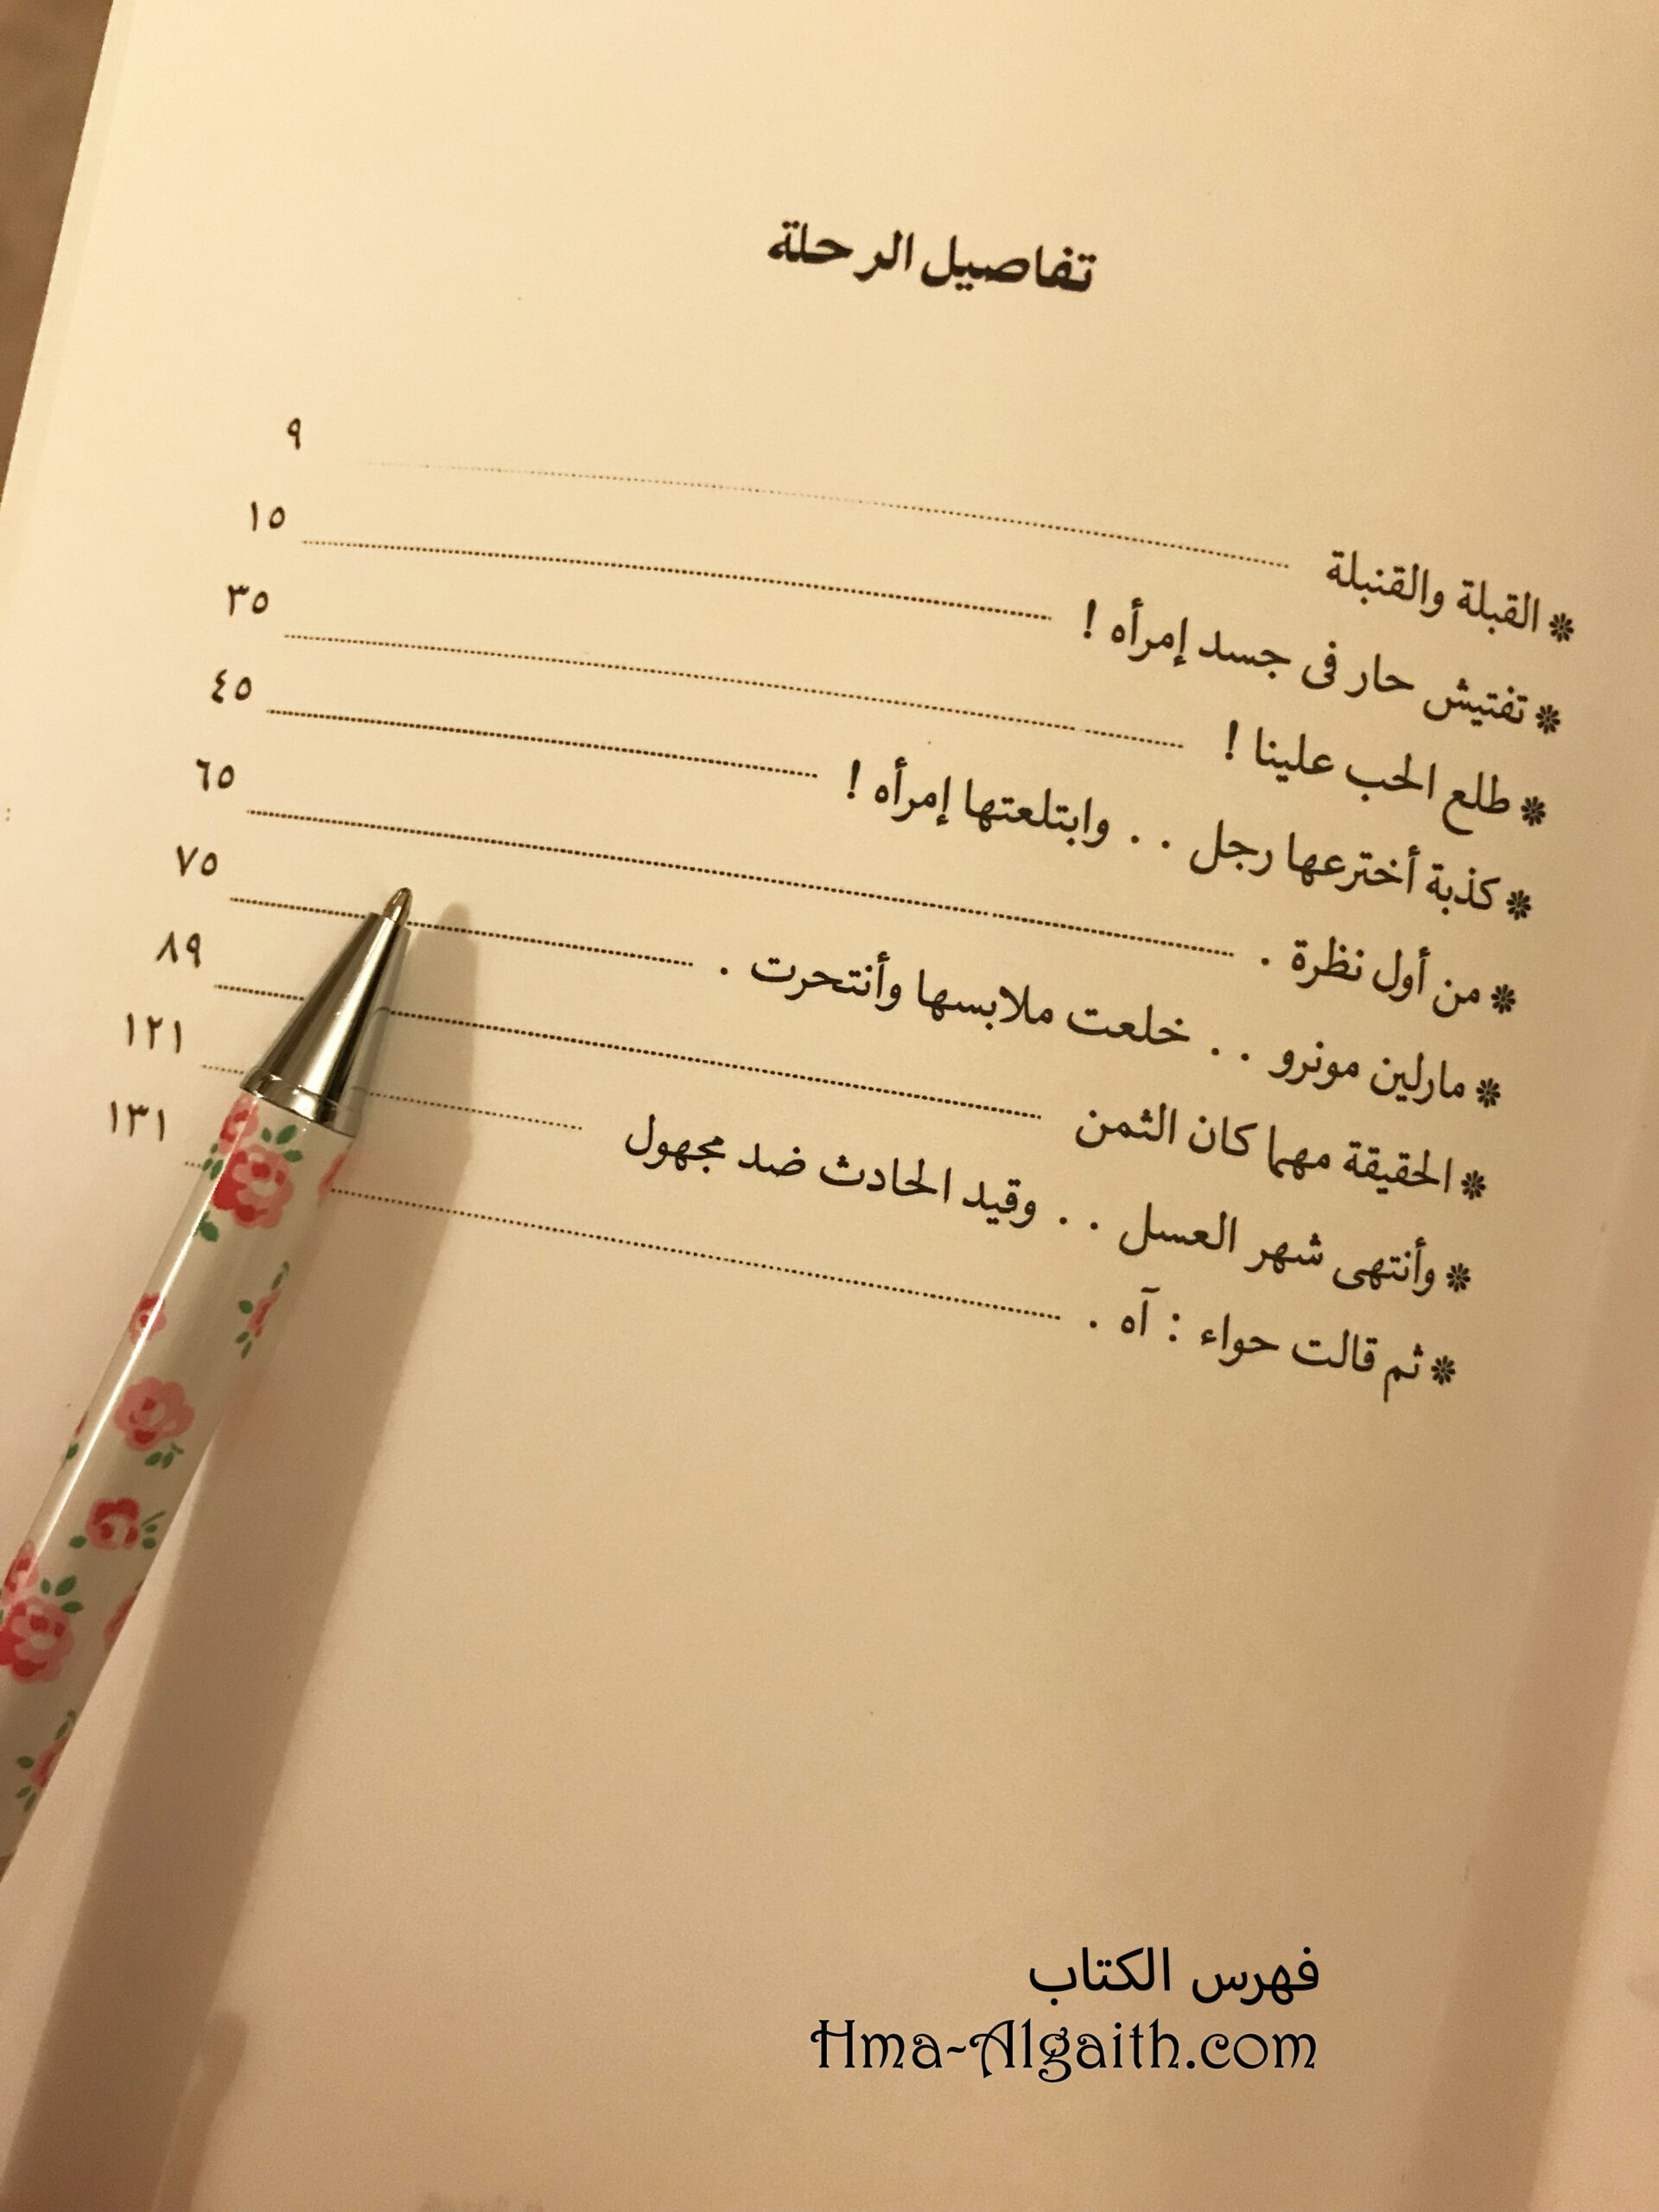 تفاصيل الرحلة
* القبلة والقنبلة ٩
* تفتيش حار فى جسد إمرأه ! ١٥
* طلع الحب علينا ! ٣٥
* كذبة أخترعها رجل . . وابتلعتها إمرأه ! ٤٥
* من أول نظرة . ٦٥
* مارلين مونرو . . خلعت ملابسها وأنتحرت . ٧٥
* الحقيقة مهما كان الثمن ٨٩
* وأنتهى شهر العسل . . وقيد الحادث ضد مجهول ١٢١
* ثم قالت حواء : آه . ١٣١
فهرس الكتاب
Hma-Algaith.com